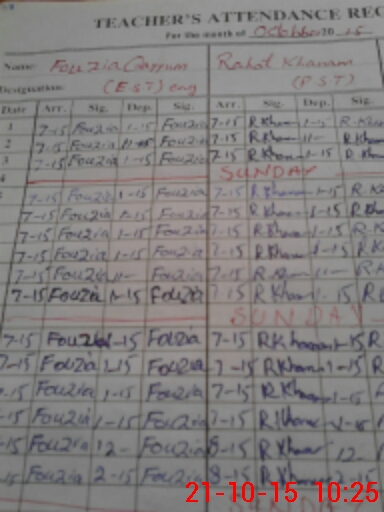 TEACHER'S ATTENDANCE REC
For the month of October 2015
Name: Fouzia Rahat Khanam
Designation: (E.S.T) eng (P.S.T)
Date Arr. Sig. Dep. Sig. Arr. Sig. Dep. Sig.
1 7-15 Fouzia 1-15 Fouzia 7-15 R Khan 1-15 R Kha
2 7-15 Fouzia Fouzia 7-15 R Khan 11- R Kh
3 7-15 Fouzia 1-15 Fouzia 7-15 R Khan 1-15 R Kh
4 SUNDAY
7-15 Fouzia 1-15 Fouzia 7-15 R Khan 1-15 R.K
7-15 Fouzia 1-15 Fouzia 7-15 R Khan 1-15 R.K
7-15 Fouzia 1-15 Fouzia 7-15 R Khan 1-15 R.K
7-15 Fouzia 1-15 Fouzia 7-15 R Khan 1-15 R.K
7-15 Fouzia 11- Fouzia 7-15 R Khan 11- R.K
7-15 Fouzia 1-15 Fouzia 7-15 R Khan 1-15 R.K
SUNDAY
7-15 Fouzia 1-15 Fouzia 7-15 R Khanam 1-15 R
7-15 Fouzia 1-15 Fouzia 7-15 R Khan 1-15 R
7-15 Fouzia 1-15 Fouzia 7-15 R Khan 1-15
7-15 Fouzia 1-15 Fouzia 7-15 R Khan 1-15 R
-15 Fouzia 12- Fouzia 8-15 R Khan 12- R
-15 Fouzia 2-15 Fouzia 8-15 R Khan 2-15
21-10-15 10:25